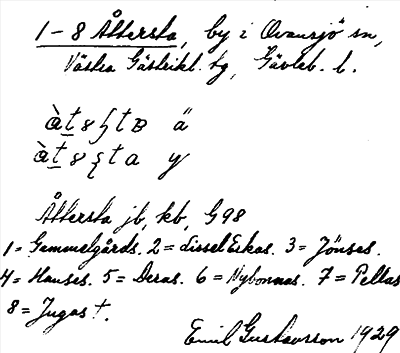 1-8 Åttersta, by i Ovansjö sn,
Västra Gästrikl. tg, Gävleb. l.
ä
y
Åttersta jb, kb, G98
1= Gammelgårds. 2= disselEskas. 3= Jönses.
4= Hanses. 5= Deras. 6= Nybonnas. 7= Pellas
8= Jugas †.
Emil Gustavsson 1929